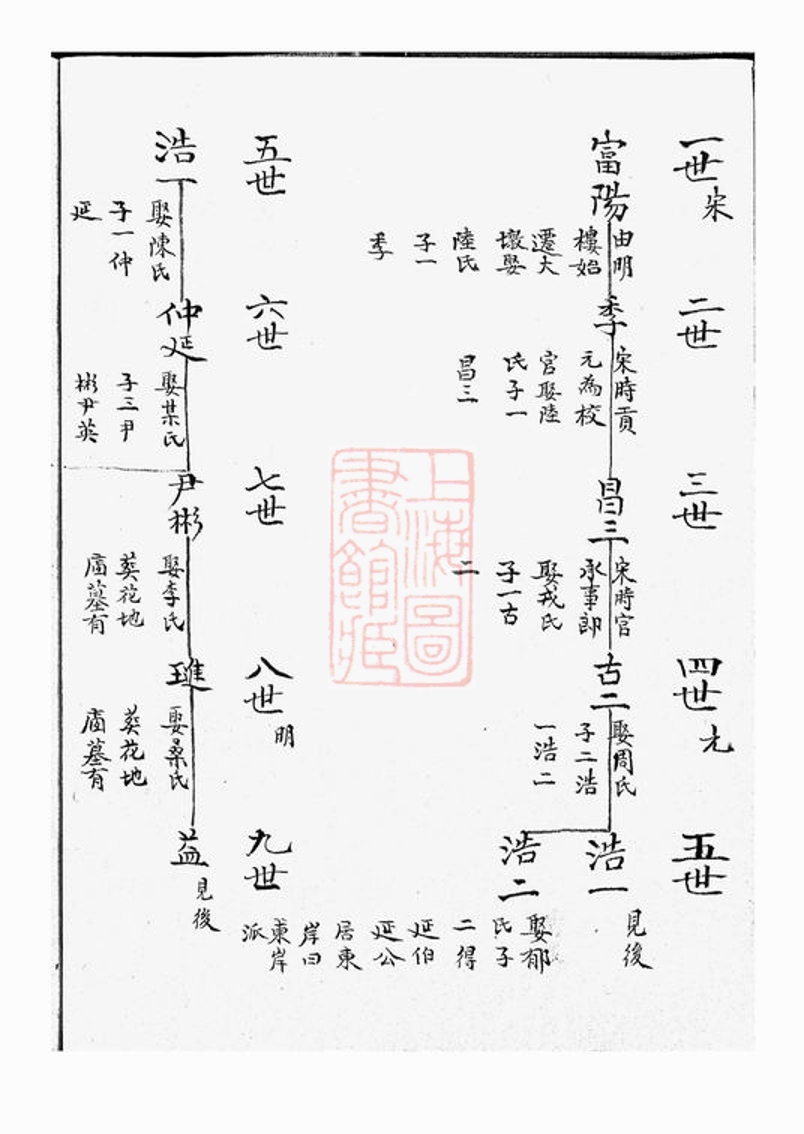 一世宋
二世
三世
四世元
五世
富陽
由明
樓始
遷大
墩娶
陸氏
子一
季
季
宋時貢
元為校
官娶陸
氏子一
昌三
昌三
宋時官
承事郎
娶戎氏
子一古
二
古二
娶周氏
子二浩
一浩二
浩一
見後
浩二
娶郁
氏子
二得
延伯
延公
居東
岸曰
東岸
派
五世
六世
七世
八世明
九世
浩一
娶陳氏
子一仲
延
仲延
娶某氏
子三尹
彬尹英
尹彬
娶李氏
葬花地
墓有
璡
娶桑氏
葬花地
墓有
益
見後
上海圖
書館藏